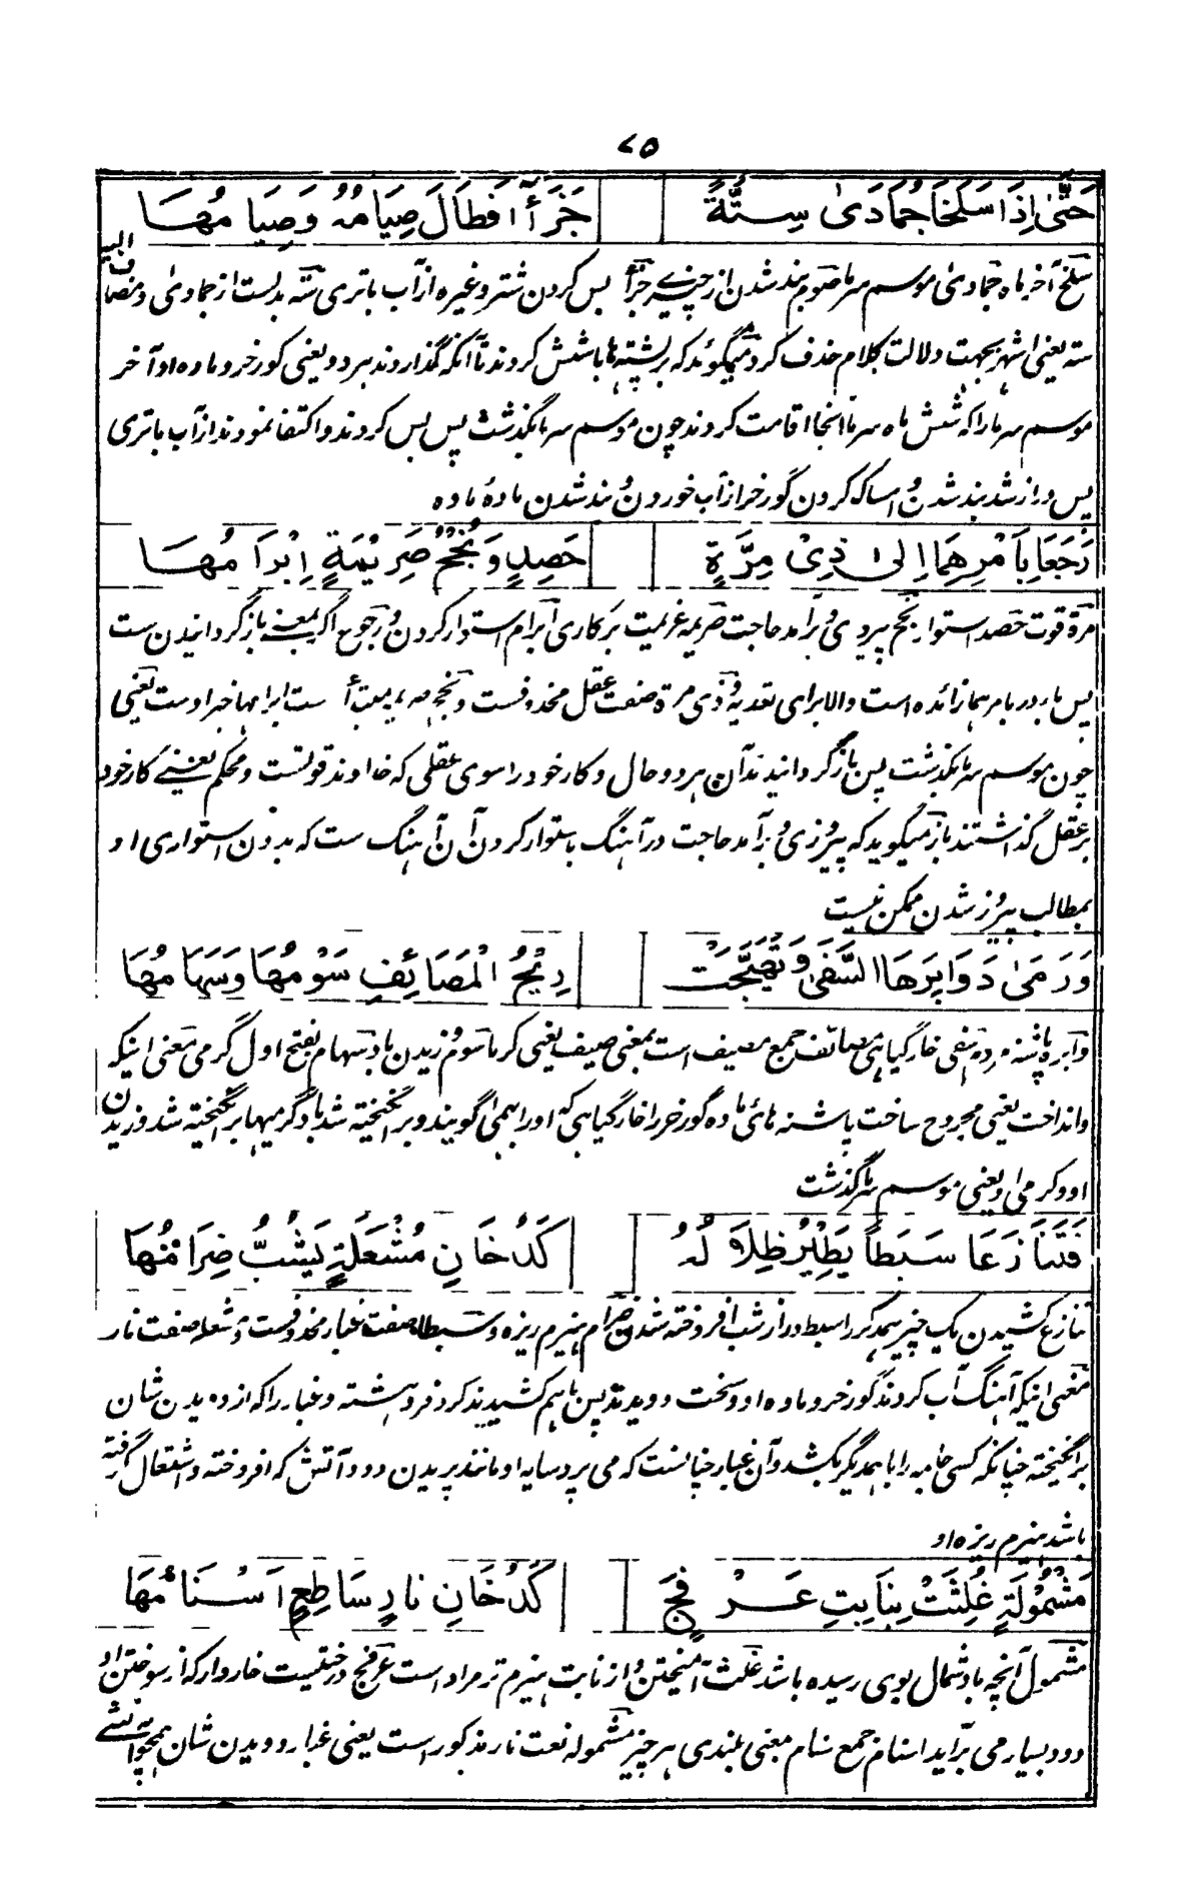 ٧٥
حَتّٰى اِذَا سَلَخَا جُمَادَىٰ سِتَّةً جَزَأَا فَطَالَ صِيَامُهُ وَصِيَامُهَا
سلخ آخر ماه جمادی موسم سرما صوم بند شدن از چیزی جزأ بس کردن شتر و غیره از آب با تری ستة بدلست از جمادی و مضاف الیه
ستة یعنی اشهر بجهت دلالت کلام حذف کرد میگوید که بر پشته‌ها باشش کردند تا آنکه گذاردند هر دو یعنی گورخر و ماده او آخر
موسم سرما را که شش ماه سرما آنجا اقامت کردند چون موسم سرما بگذشت پس بس کردند و اکتفا نمودند از آب با تری
پس دراز شد بند شدن و امساک کردن گورخر از آب خوردن و بند شدن ماده ماده
رَجَعَا بِاَمْرِهِمَا اِلىٰ ذِیْ مِرَّةٍ حَصِدٍ وَنُجْحُ صَرِيْمَةٍ اِبْرَامُهَا
مرة قوت حصد استوار نجح پیروزی و برآمد حاجت صریمه عزیمت بر کاری ابرام استوار کردن و رجوع اگر بمعنی باز گردانیدن ست
پس با در بامرهما زائده است والا برای تعدیه و ذی مرة صفت عقل محذوفست و نجح صریمه مبتدأ ست ابرامها خبر اوست یعنی
چون موسم سرما بگذشت پس باز گردانیدند آن هر دو حال و کار خود را سوی عقلی که خداوند قوتست و محکم یعنی کار خود
بر عقل گذاشتند باز میگوید که پیروزی و برآمد حاجت در آهنگ باستوار کردن آن آهنگ ست که بدون استواری او
بمطالب پیروز شدن ممکن نیست
وَرَمىٰ دَوَابِرَهَا السَّفَىٰ وَتَهَيَّجَتْ رِيْحُ الْمَصَائِفِ سَوْمُهَا وَسَهَامُهَا
دابره پاشنه سفی خار گیاهی مصائف جمع مصیف است بمعنی صیف یعنی گرما سوم وزیدن باد سهام بفتح اول گرمی معنی اینکه
و انداخت یعنی مجروح ساخت پاشنه‌های ماده گورخر را خار گیاهی که او را بهمی گویند و برانگیخته شد باد گرمیها برانگیخته شد وزیدن
او و گرمی او یعنی موسم سرما گذشت
فَتَنَازَعَا سَبَطاً يَطِيْرُ ظِلَالُهُ كَدُخَانِ مُشْعَلَةٍ يَشُبُّ ضِرَامُهَا
تنازع کشیدن یک چیز همدگر را سبط دراز شب افروخته شدن ضرام هیزم ریزه و سبطا صفت غبار محذوفست و مشعله صفت نار
معنی اینکه آهنگ آب کردند گورخر و ماده او و سخت دویدند پس باهم کشیدند گرد فروهشته و غبار را که از دویدن شان
برانگیخته چنانکه کسی جامه را با همدیگر بکشد و آن غبار چنانست که می پرد سایه او مانند پریدن دود آتش که افروخته و اشتعال گرفته
باشد هیزم ریزه او
مَشْمُوْلَةٍ غُلِثَتْ بِنَابِتِ عَرْفَجٍ كَدُخَانِ نَارٍ سَاطِعٍ اَسْنَامُهَا
مشمول آنچه باد شمال بوی رسیده باشد غلث آمیختن و از نابت هیزم تر مراد است عرفج درختیست خاردار که از سوختن او
دود بسیار می برآید اسنام جمع سنام بمعنی بلندی هر چیز مشموله نعت نار مذکور است یعنی غبار دویدن شان همچو آتشی